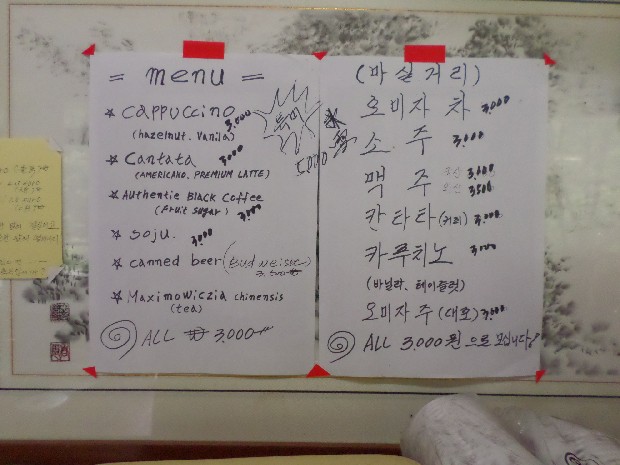 = menu =
☆ Cappuccino 3,000
(hazelnut. Vanila)
☆ Cantata 3000
(AMERICANO. PREMIUM LATTE)
☆ Authentic BLACK Coffee
(fruit sugar) 3,000
☆ Soju. 3,000
☆ canned beer (Bud weiser)
3,500
☆ Maximowiczia chinensis
(tea)
ALL ₩ 3,000
5,000
(마실거리)
오미자 차 3,000
소 주 3,000
맥 주 3,000
3,500
칸타타 (커피) 3,000
카푸치노 3,000
(바닐라. 헤이즐럿)
오미자 주 (대포) 3,000
ALL 3.000원 으로 모십니다!